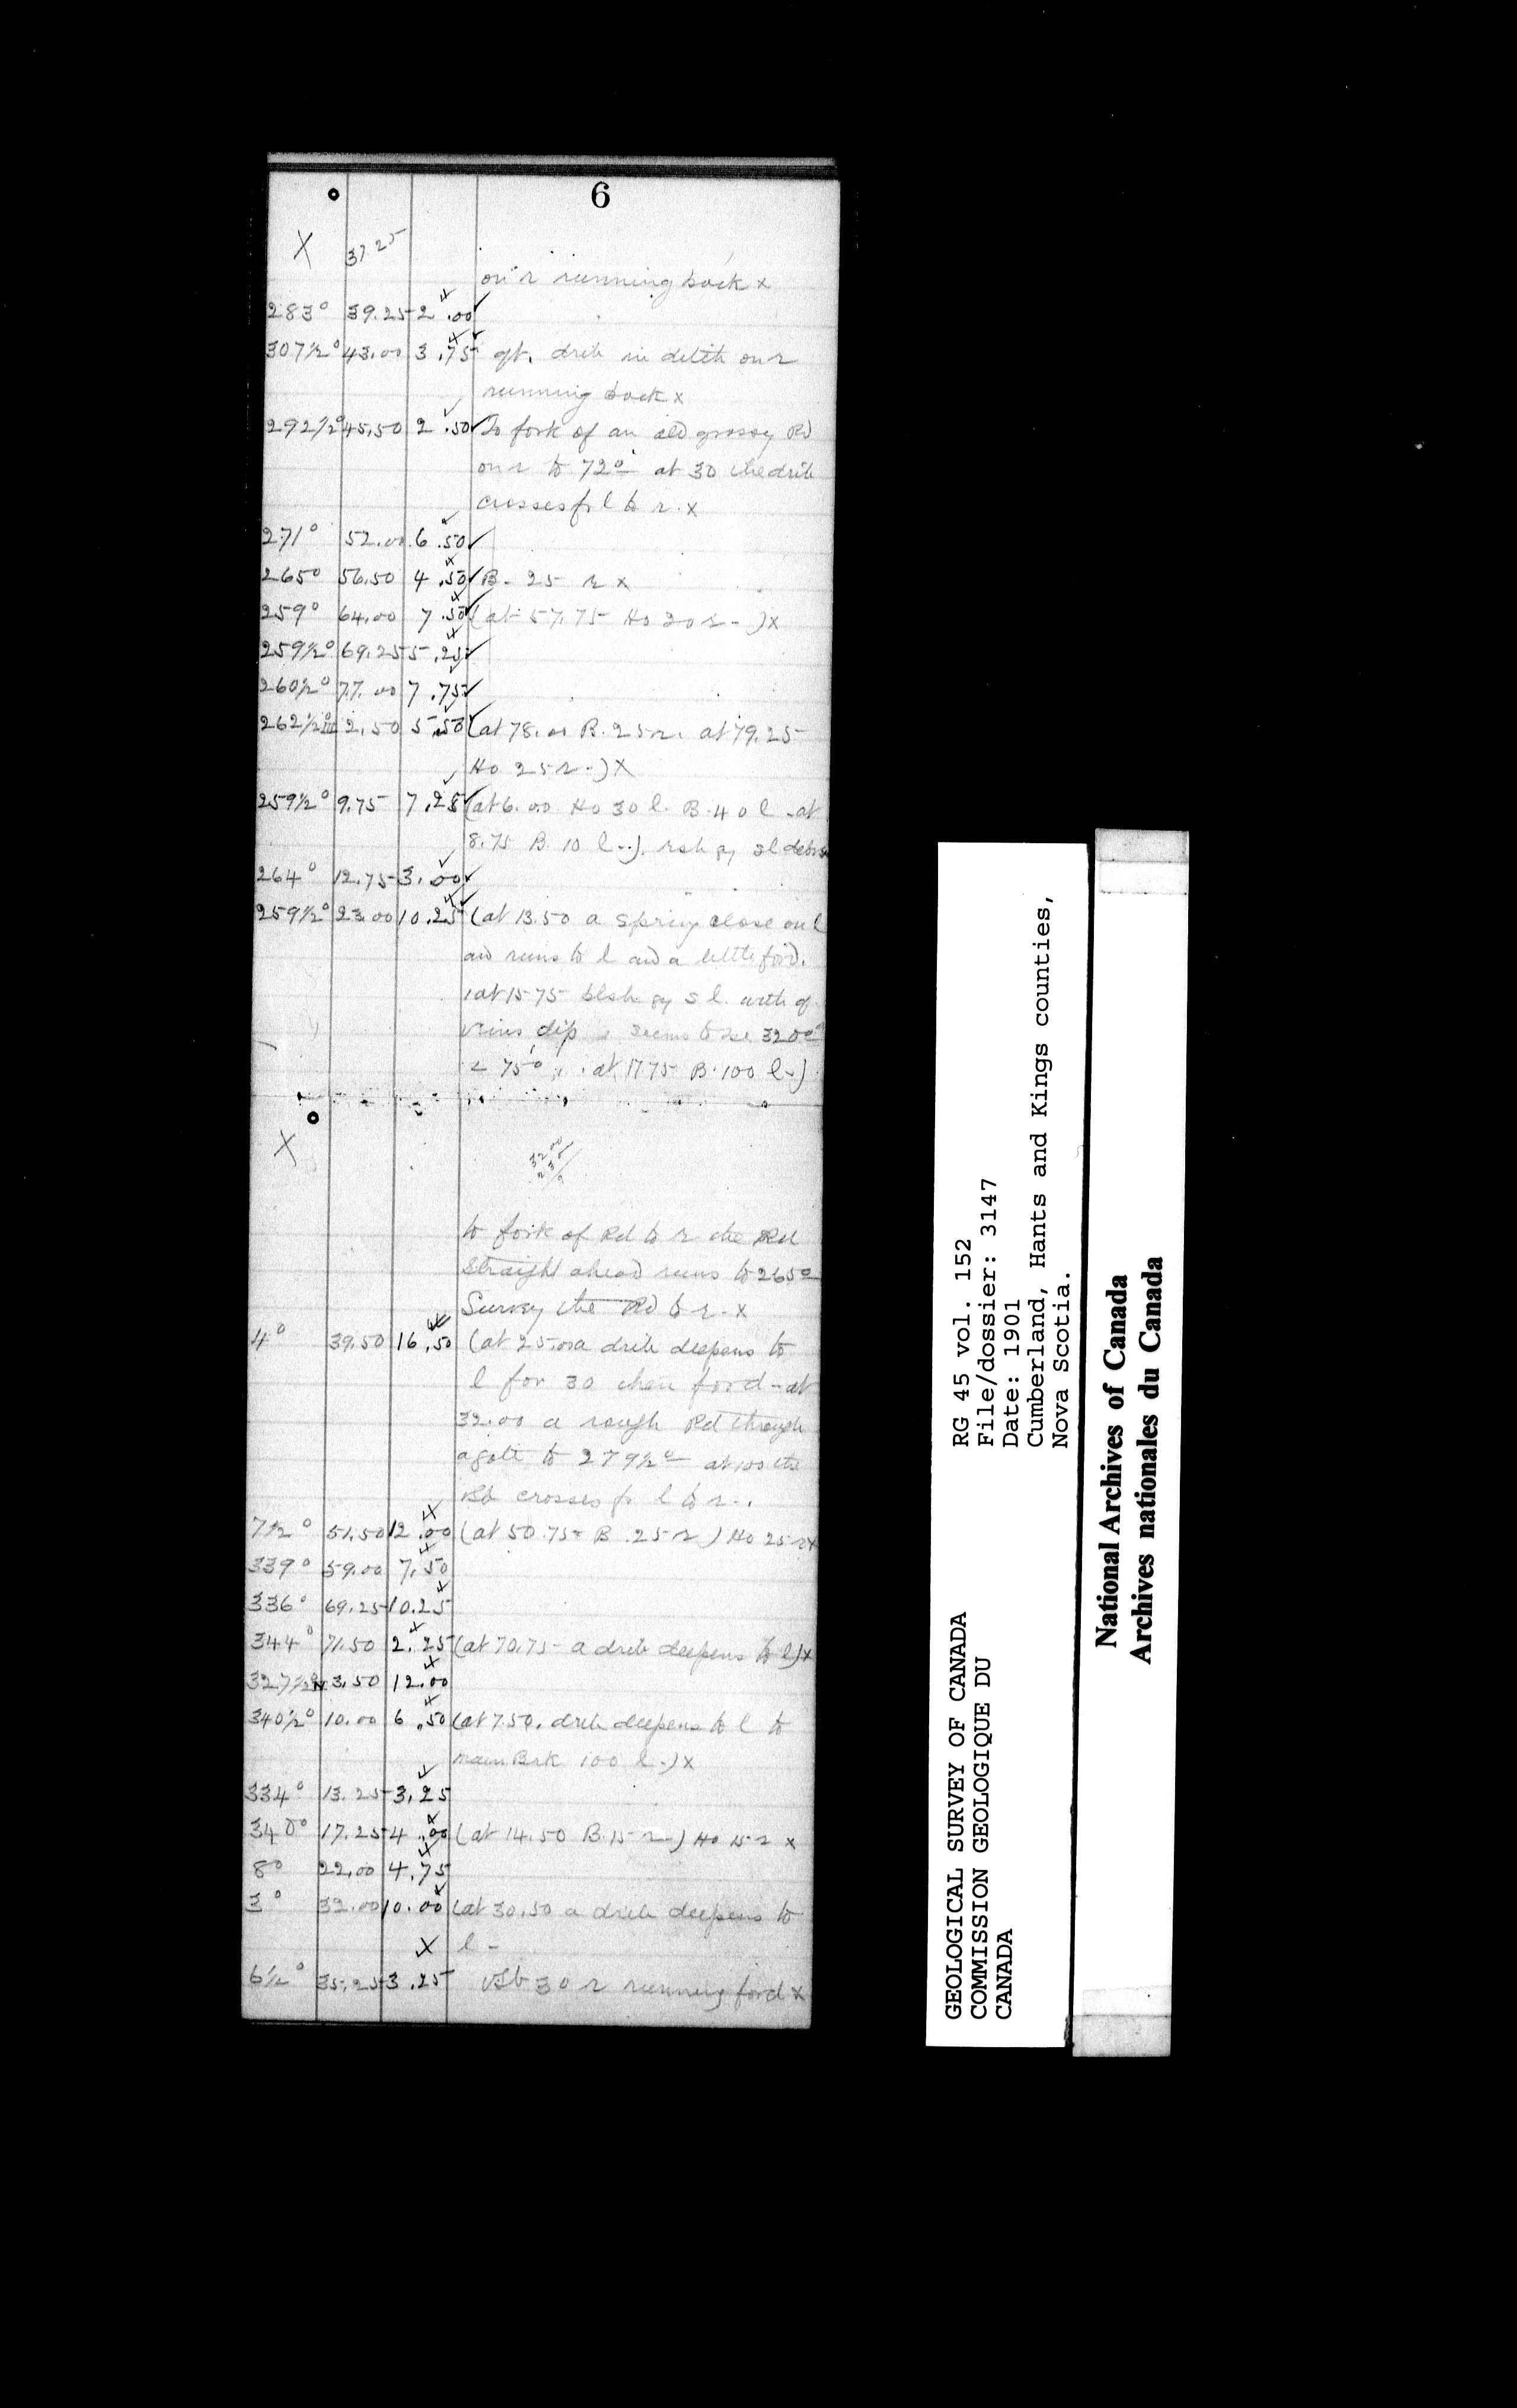 6
X 37.25
on r running back x
283° 39.25 2.00
307½° 43.00 3.75 qt. drib in ditch on r
running back x
292½° 45.50 2.50 To fork of an old grassy Rd
on r to 72° at 30 the drib
crosses fr l to r. x
271° 52.00 6.50
265° 56.50 4.50 B. 25 r x
259° 64.00 7.50 (at 57.75 Ho 20 r -) x
259½° 69.25 5.25
260½° 77.00 7.75
262½° III 2.50 5.50 (at 78.00 B. 25 r. at 79.25
Ho 25 r -) X
259½° 9.75 7.25 (at 6.00 Ho 30 l. B. 40 l - at
8.75 B. 10 l -.). rsh gy sl debris
264° 12.75 3.00
259½° 23.00 10.25 (at 13.50 a spring close on l
and runs to l and a little ford.
at 15.75 blsh gy sl. with q
veins dip seems to be 320°
< 75°, at 17.75 B. 100 l -)
X
32.00
23.0
9
to fork of Rd to r the Rd
straight ahead runs to 265°
Survey the Rd to r. x
4° 39.50 16.50 (at 25.00 a drib deepens to
l for 30 then ford - at
32.00 a rough Rd through
a gate to 279½° at 100 the
vsb crosses fr l to r -.
7½° 51.50 12.00 (at 50.75 B. 25 r) Ho 25 r x
339° 59.00 7.50
336° 69.25 10.25
344° 71.50 2.25 (at 70.75 a drib deepens to l) x
327½° 3.50 12.00
340½° 10.00 6.50 (at 7.50. drib deepens to l to
main Brk 100 l -) x
334° 13.25 3.25
340° 17.25 4.00 (at 14.50 B. 15 r -) Ho 15 r x
8° 22.00 4.75
3° 32.00 10.00 (at 30.50 a drib deepens to
X l -
6½° 35.25 3.25 vsb 30 r running ford x
GEOLOGICAL SURVEY OF CANADA
COMMISSION GEOLOGIQUE DU
CANADA
RG 45 vol. 152
File/dossier: 3147
Date: 1901
Cumberland, Hants and Kings counties,
Nova Scotia.
National Archives of Canada
Archives nationales du Canada